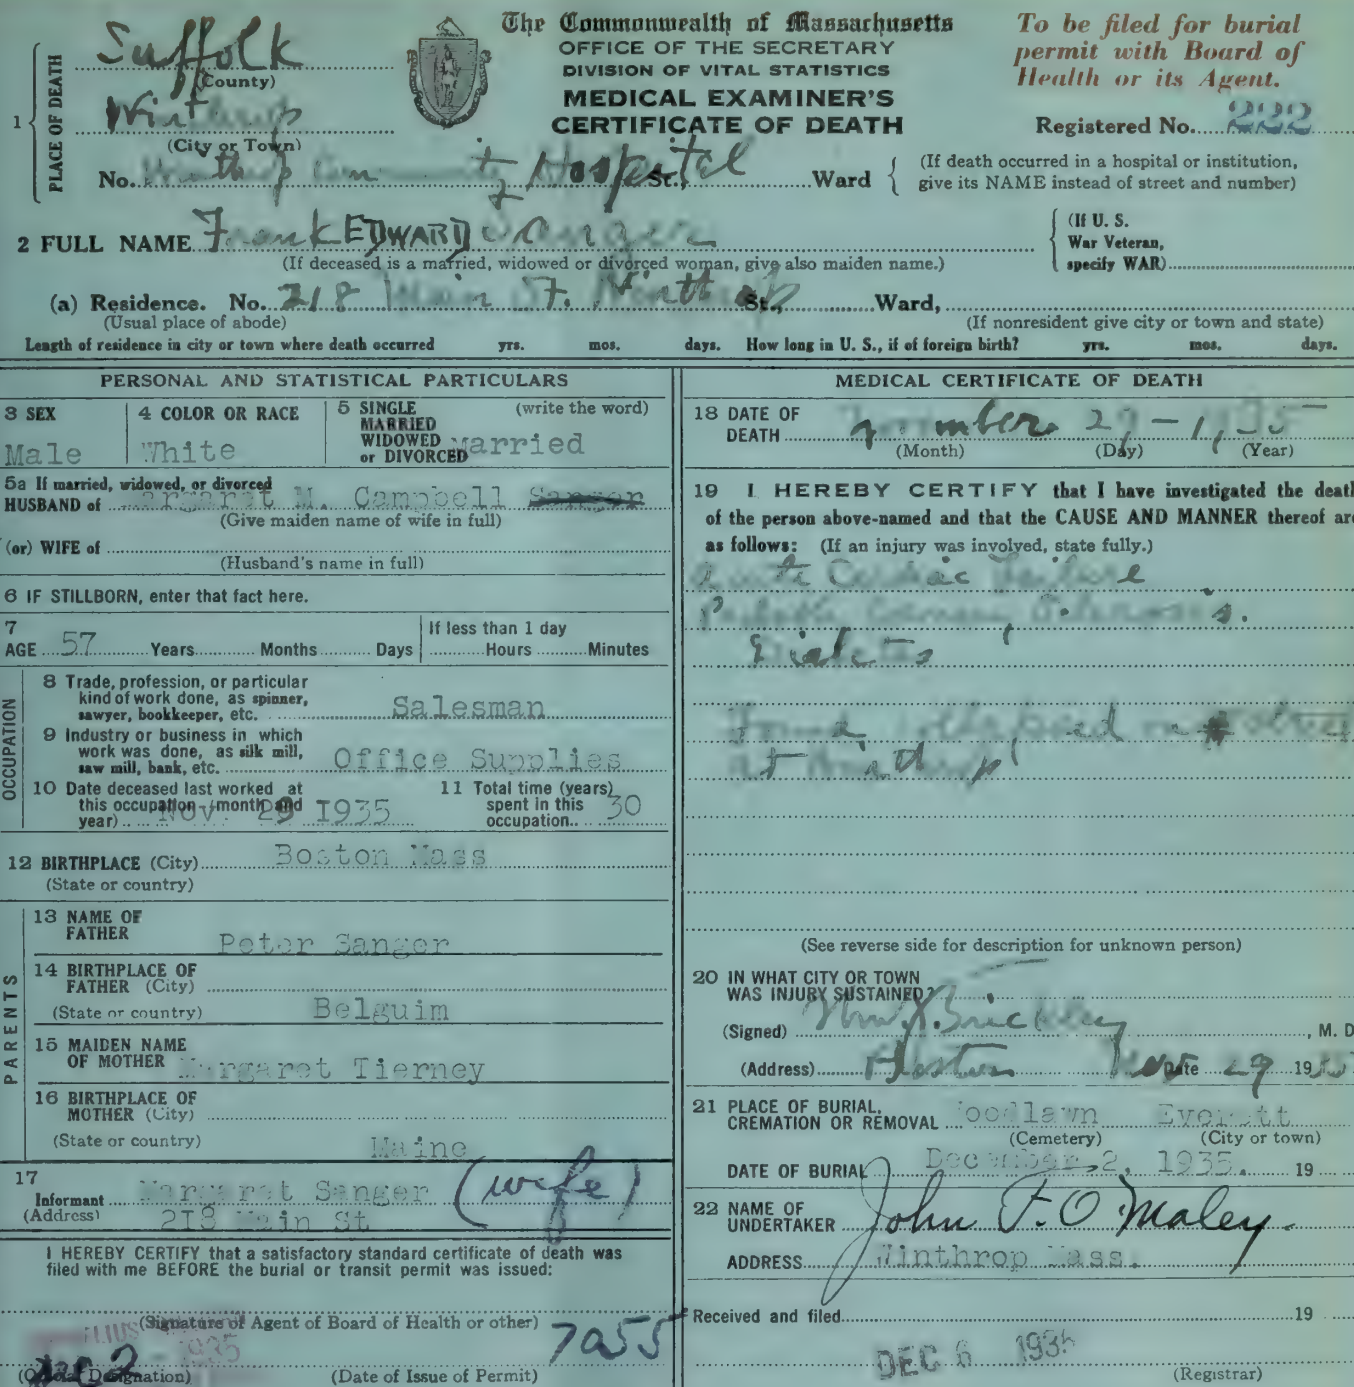 The Commonwealth of Massachusetts
OFFICE OF THE SECRETARY
DIVISION OF VITAL STATISTICS
MEDICAL EXAMINER'S
CERTIFICATE OF DEATH
To be filed for burial
permit with Board of
Health or its Agent.
Registered No. 222
1 PLACE OF DEATH
Suffolk
(County)
Winthrop
(City or Town)
No. Winthrop Community Hospital St., Ward
(If death occurred in a hospital or institution,
give its NAME instead of street and number)
2 FULL NAME Frank EDWARD Sanger
(If deceased is a married, widowed or divorced woman, give also maiden name.)
(If U. S.
War Veteran,
specify WAR)
(a) Residence. No. 218 Main St. Winthrop St., Ward,
(Usual place of abode)
(If nonresident give city or town and state)
Length of residence in city or town where death occurred yrs. mos. days. How long in U. S., if of foreign birth? yrs. mos. days.
PERSONAL AND STATISTICAL PARTICULARS
3 SEX
Male
4 COLOR OR RACE
White
5 SINGLE
MARRIED
WIDOWED
or DIVORCED
(write the word)
Married
5a If married, widowed, or divorced
HUSBAND of Margaret M. Campbell Sanger
(Give maiden name of wife in full)
(or) WIFE of
(Husband's name in full)
6 IF STILLBORN, enter that fact here.
7
AGE 57 Years Months Days
If less than 1 day
Hours Minutes
OCCUPATION
8 Trade, profession, or particular
kind of work done, as spinner,
sawyer, bookkeeper, etc. Salesman
9 Industry or business in which
work was done, as silk mill,
saw mill, bank, etc. Office Supplies
10 Date deceased last worked at
this occupation (month and
year) Nov. 29 1935
11 Total time (years)
spent in this
occupation 30
12 BIRTHPLACE (City) Boston Mass
(State or country)
PARENTS
13 NAME OF
FATHER
Peter Sanger
14 BIRTHPLACE OF
FATHER (City)
(State or country) Belguim
15 MAIDEN NAME
OF MOTHER Margaret Tierney
16 BIRTHPLACE OF
MOTHER (City)
(State or country) Maine
17
Informant Margaret Sanger (wife)
(Address) 218 Main St
I HEREBY CERTIFY that a satisfactory standard certificate of death was
filed with me BEFORE the burial or transit permit was issued:
(Signature of Agent of Board of Health or other) 7055
1935
Dec 2
(Official Designation) (Date of Issue of Permit)
MEDICAL CERTIFICATE OF DEATH
18 DATE OF
DEATH November 29 - 1935
(Month) (Day) (Year)
19 I HEREBY CERTIFY that I have investigated the death
of the person above-named and that the CAUSE AND MANNER thereof are
as follows: (If an injury was involved, state fully.)
Acute Cardiac Failure
Coronary Sclerosis.
Diabetes
Found collapsed
at Winthrop
(See reverse side for description for unknown person)
20 IN WHAT CITY OR TOWN
WAS INJURY SUSTAINED?
(Signed) Wm. J. Brickley, M. D.
(Address) Boston Nov Date 29 1935
21 PLACE OF BURIAL,
CREMATION OR REMOVAL Woodlawn Everett
(Cemetery) (City or town)
DATE OF BURIAL December 2, 1935. 19
22 NAME OF
UNDERTAKER John F. O'Maley.
ADDRESS Winthrop Mass.
Received and filed 19
DEC 6 1935
(Registrar)